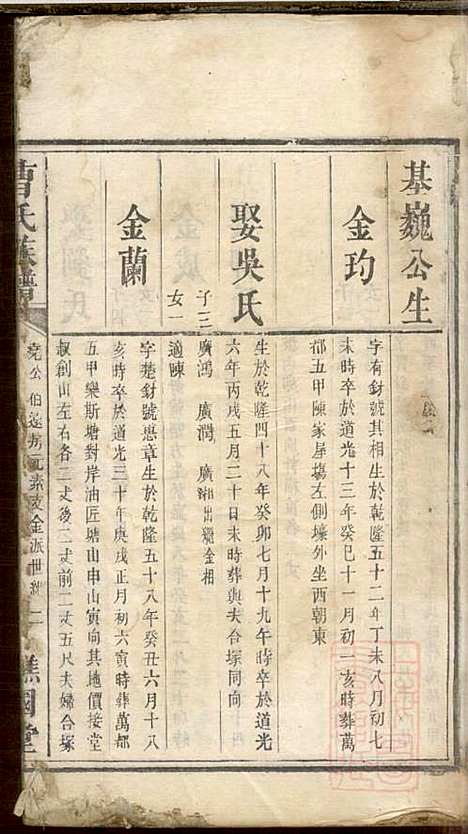 基巍公生
金玓
字有財號其相生於乾隆五十二年丁未八月初七
未時卒於道光十三年癸巳十一月初一亥時葬萬
都五甲陳家屋塲左側壕外坐西朝東
娶吳氏
生於乾隆四十八年癸卯七月十九午時卒於道光
六年丙戌五月二十日未時葬與夫合塚同向
子三
廣鴻 廣潤 廣湘出繼金相
女一
適陳
金蘭
字楚財號惠章生於乾隆五十八年癸丑六月十八
亥時卒於道光三十年庚戌正月初六寅時葬萬都
五甲樂斯塘對岸油匠塘山申山寅向其地價接堂
叔創山左右各二丈後二丈前二丈五尺夫婦合塚
曹氏族譜
堯公伯達房元素支金派世
二
譙國堂